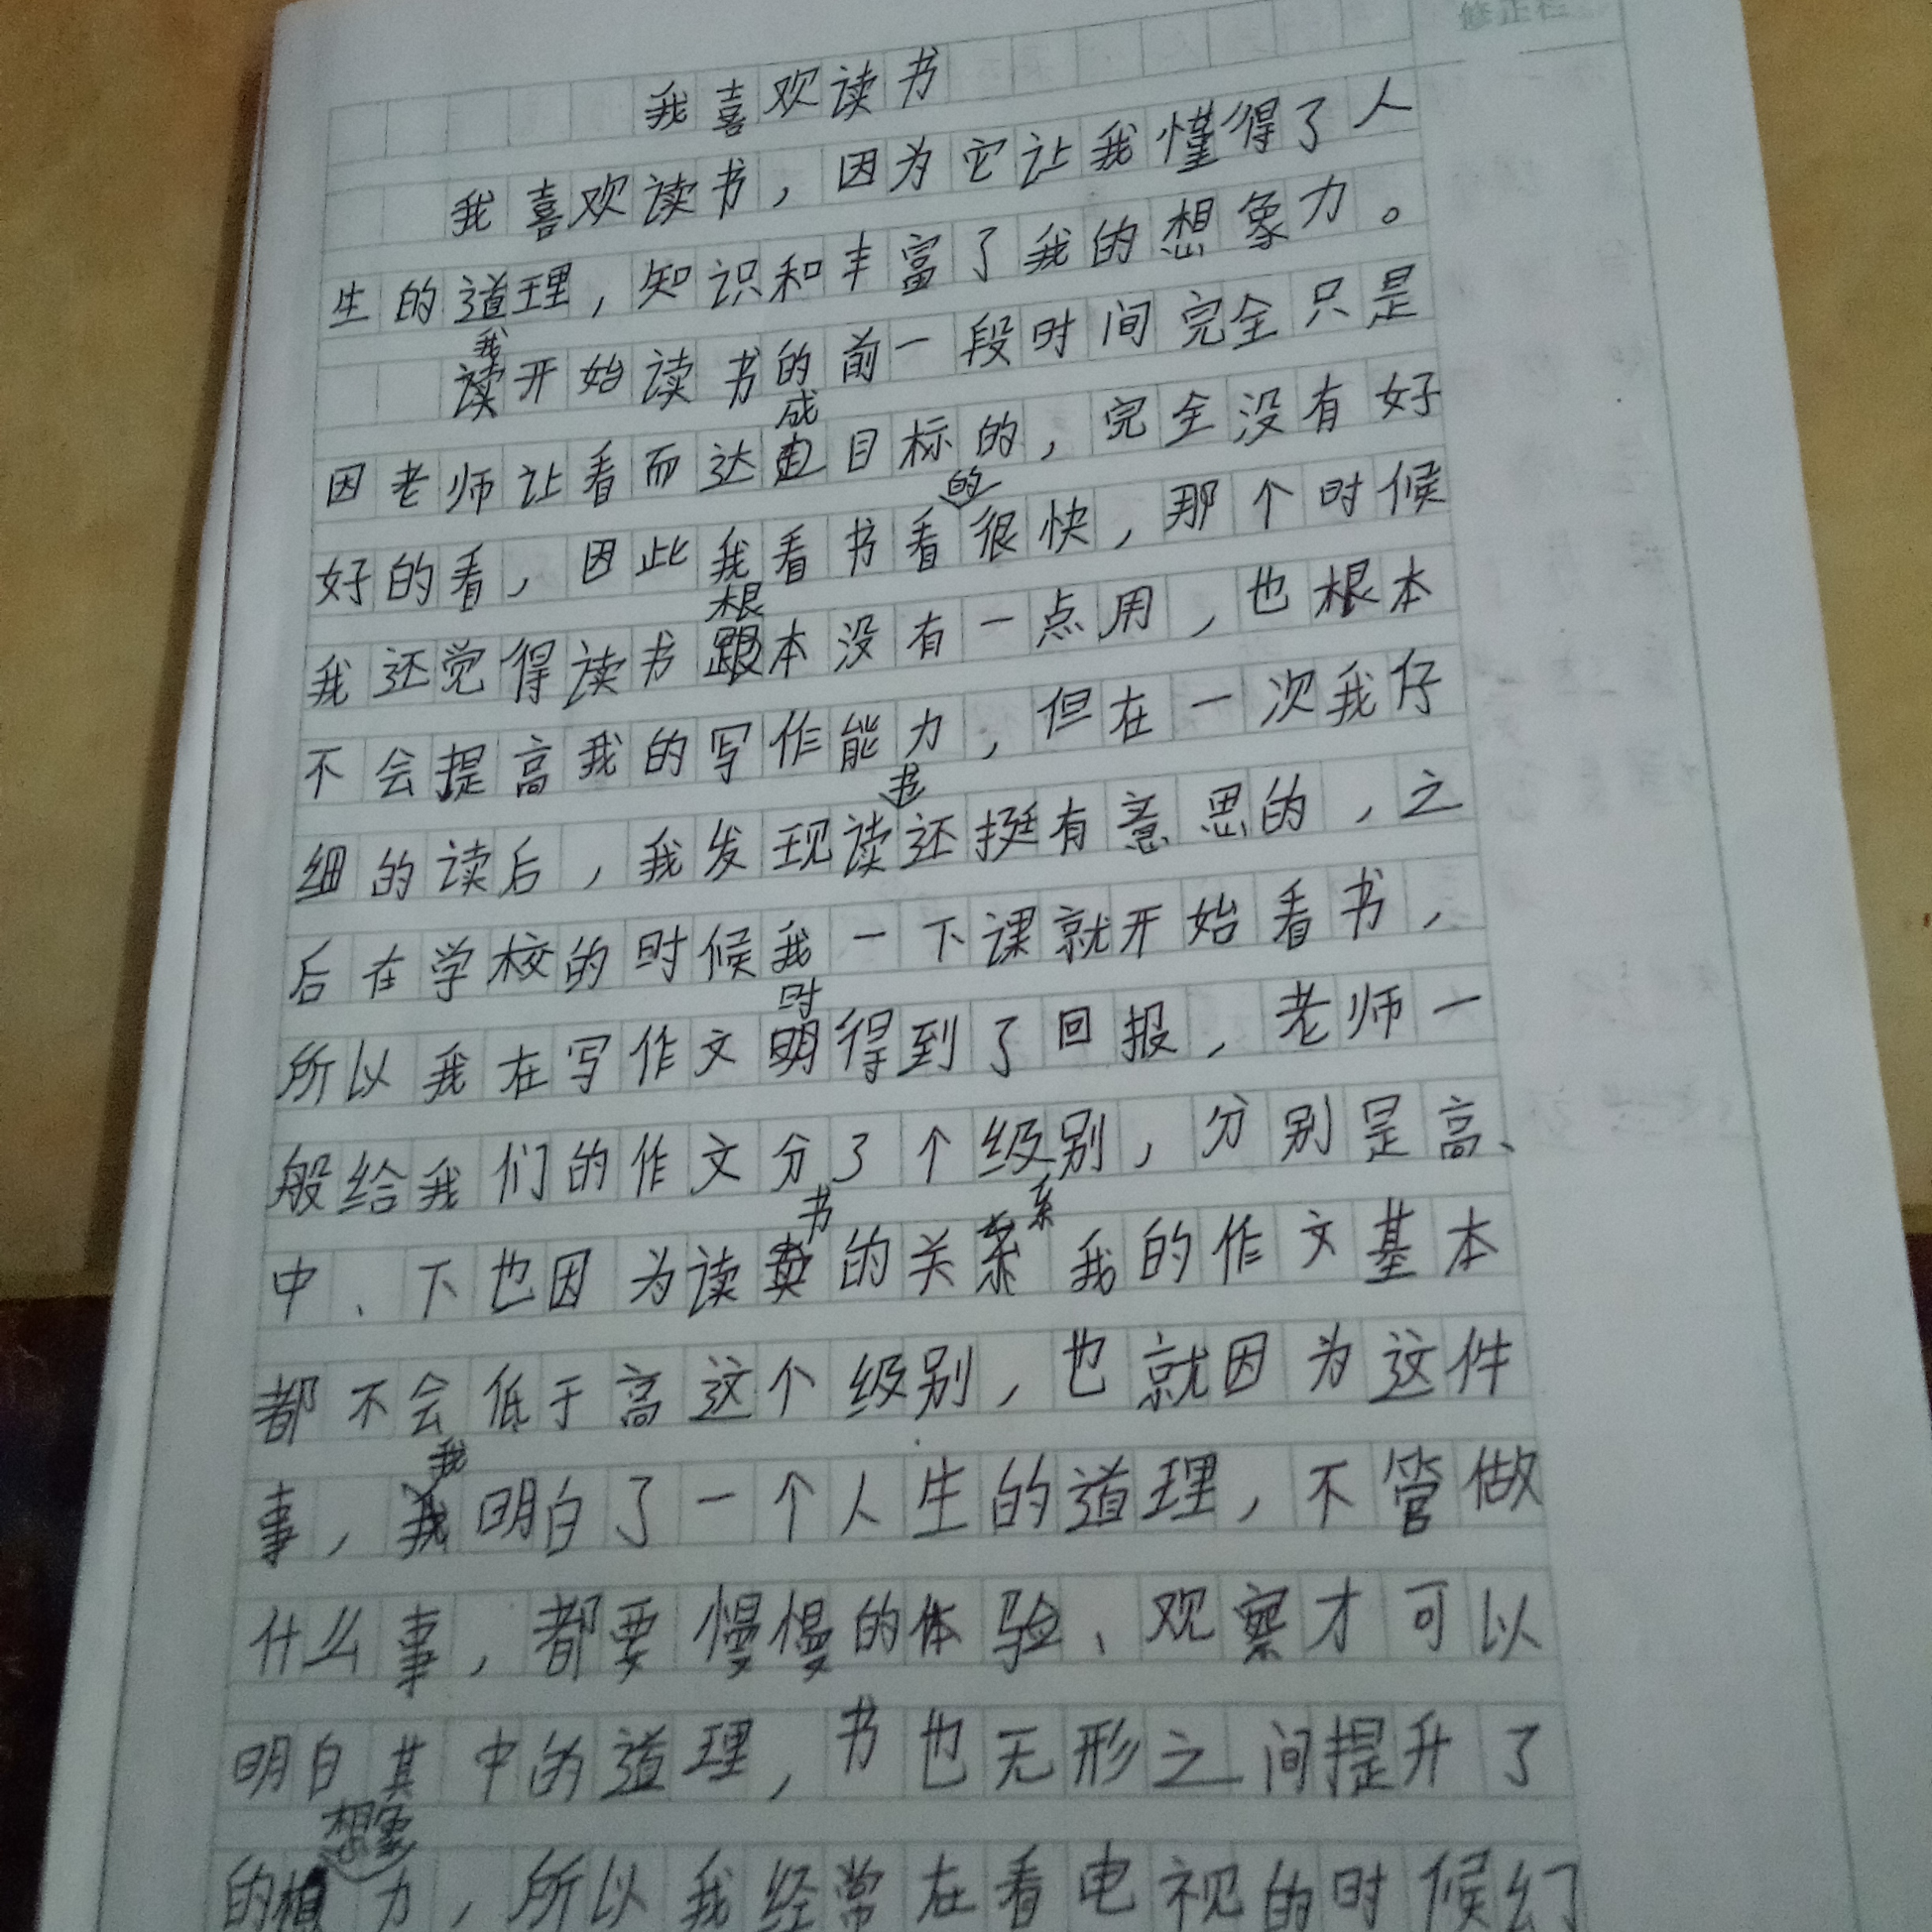 修正栏
我喜欢读书
我喜欢读书，因为它让我懂得了人
生的道理，知识和丰富了我的想象力。
我
读开始读书的前一段时间完全只是
成
因老师让看而达目标的，完全没有好
的
好的看，因此我看书看很快，那个时候
根
我还觉得读书跟本没有一点用，也根本
不会提高我的写作能力，但在一次我仔
书
细的读后，我发现读还挺有意思的，之
后在学校的时候我一下课就开始看书，
时
所以我在写作文明得到了回报，老师一
般给我们的作文分了个级别，分别是高、
书 系
中、下也因为读的关系我的作文基本
都不会低于高这个级别，也就因为这件
我
事，我明白了一个人生的道理，不管做
什么事，都要慢慢的体验、观察才可以
明白其中的道理，书也无形之间提升了
想象
的力，所以我经常在看电视的时候幻